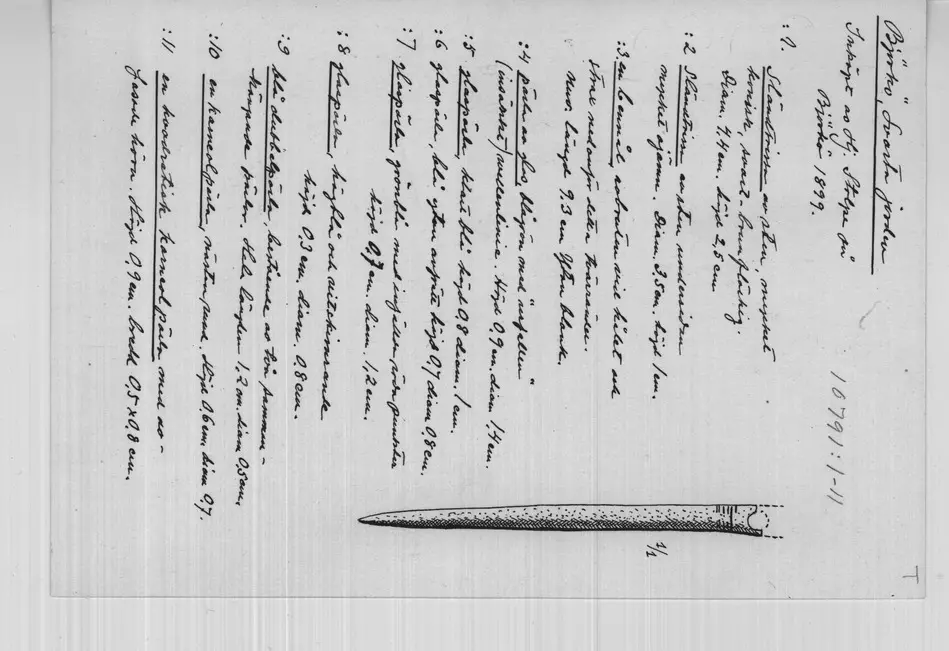 Björkö, Svarta jorden
Inköpt av Hj. Stolpe på
Björkö 1899.
10791:1-11
:1. Sländtrissa av sten, mycket
konisk, svart-brunfläckig.
Diam. 4,4 cm. höjd 2,5 cm
:2 Sländtrissa av sten undersidan
mycket ojämn. Diam. 3,5 cm. höjd 1 cm.
:3. en bennål, avbruten vid hålet och
strax nedanför detta tvärräfflor.
nuv. längd 9.3 cm Ytan blank.
:4 pärla av glas blågrön med "ögellen"
(insänkt) mellanlinie. Höjd 0,9 cm. diam 1,4 cm.
:5 glaspärla, klart blå höjd 0,8 diam. 1 cm.
:6 glaspärla, blå ytan höjd 0,7 diam 0,8 cm.
:7 glaspärla, grönblå med röda punkter
höjd 0,7 cm. diam. 1,2 cm.
:8 glaspärla, högblå och
höjd 0.3 cm. diam. 0,8 cm.
:9 blå dubbelpärla, bestående av två samman-
hängande pärlor. Hela längden 1,2 cm. diam 0,5 cm.
:10 en karneolpärla, nästan rund. Höjd 0.6 cm. diam 0,7.
:11 en kvadratisk karneolpärla med av-
fasade hörn. Höjd 0,9 cm. bredd 0,5 x 0,8 cm.
1/1
T